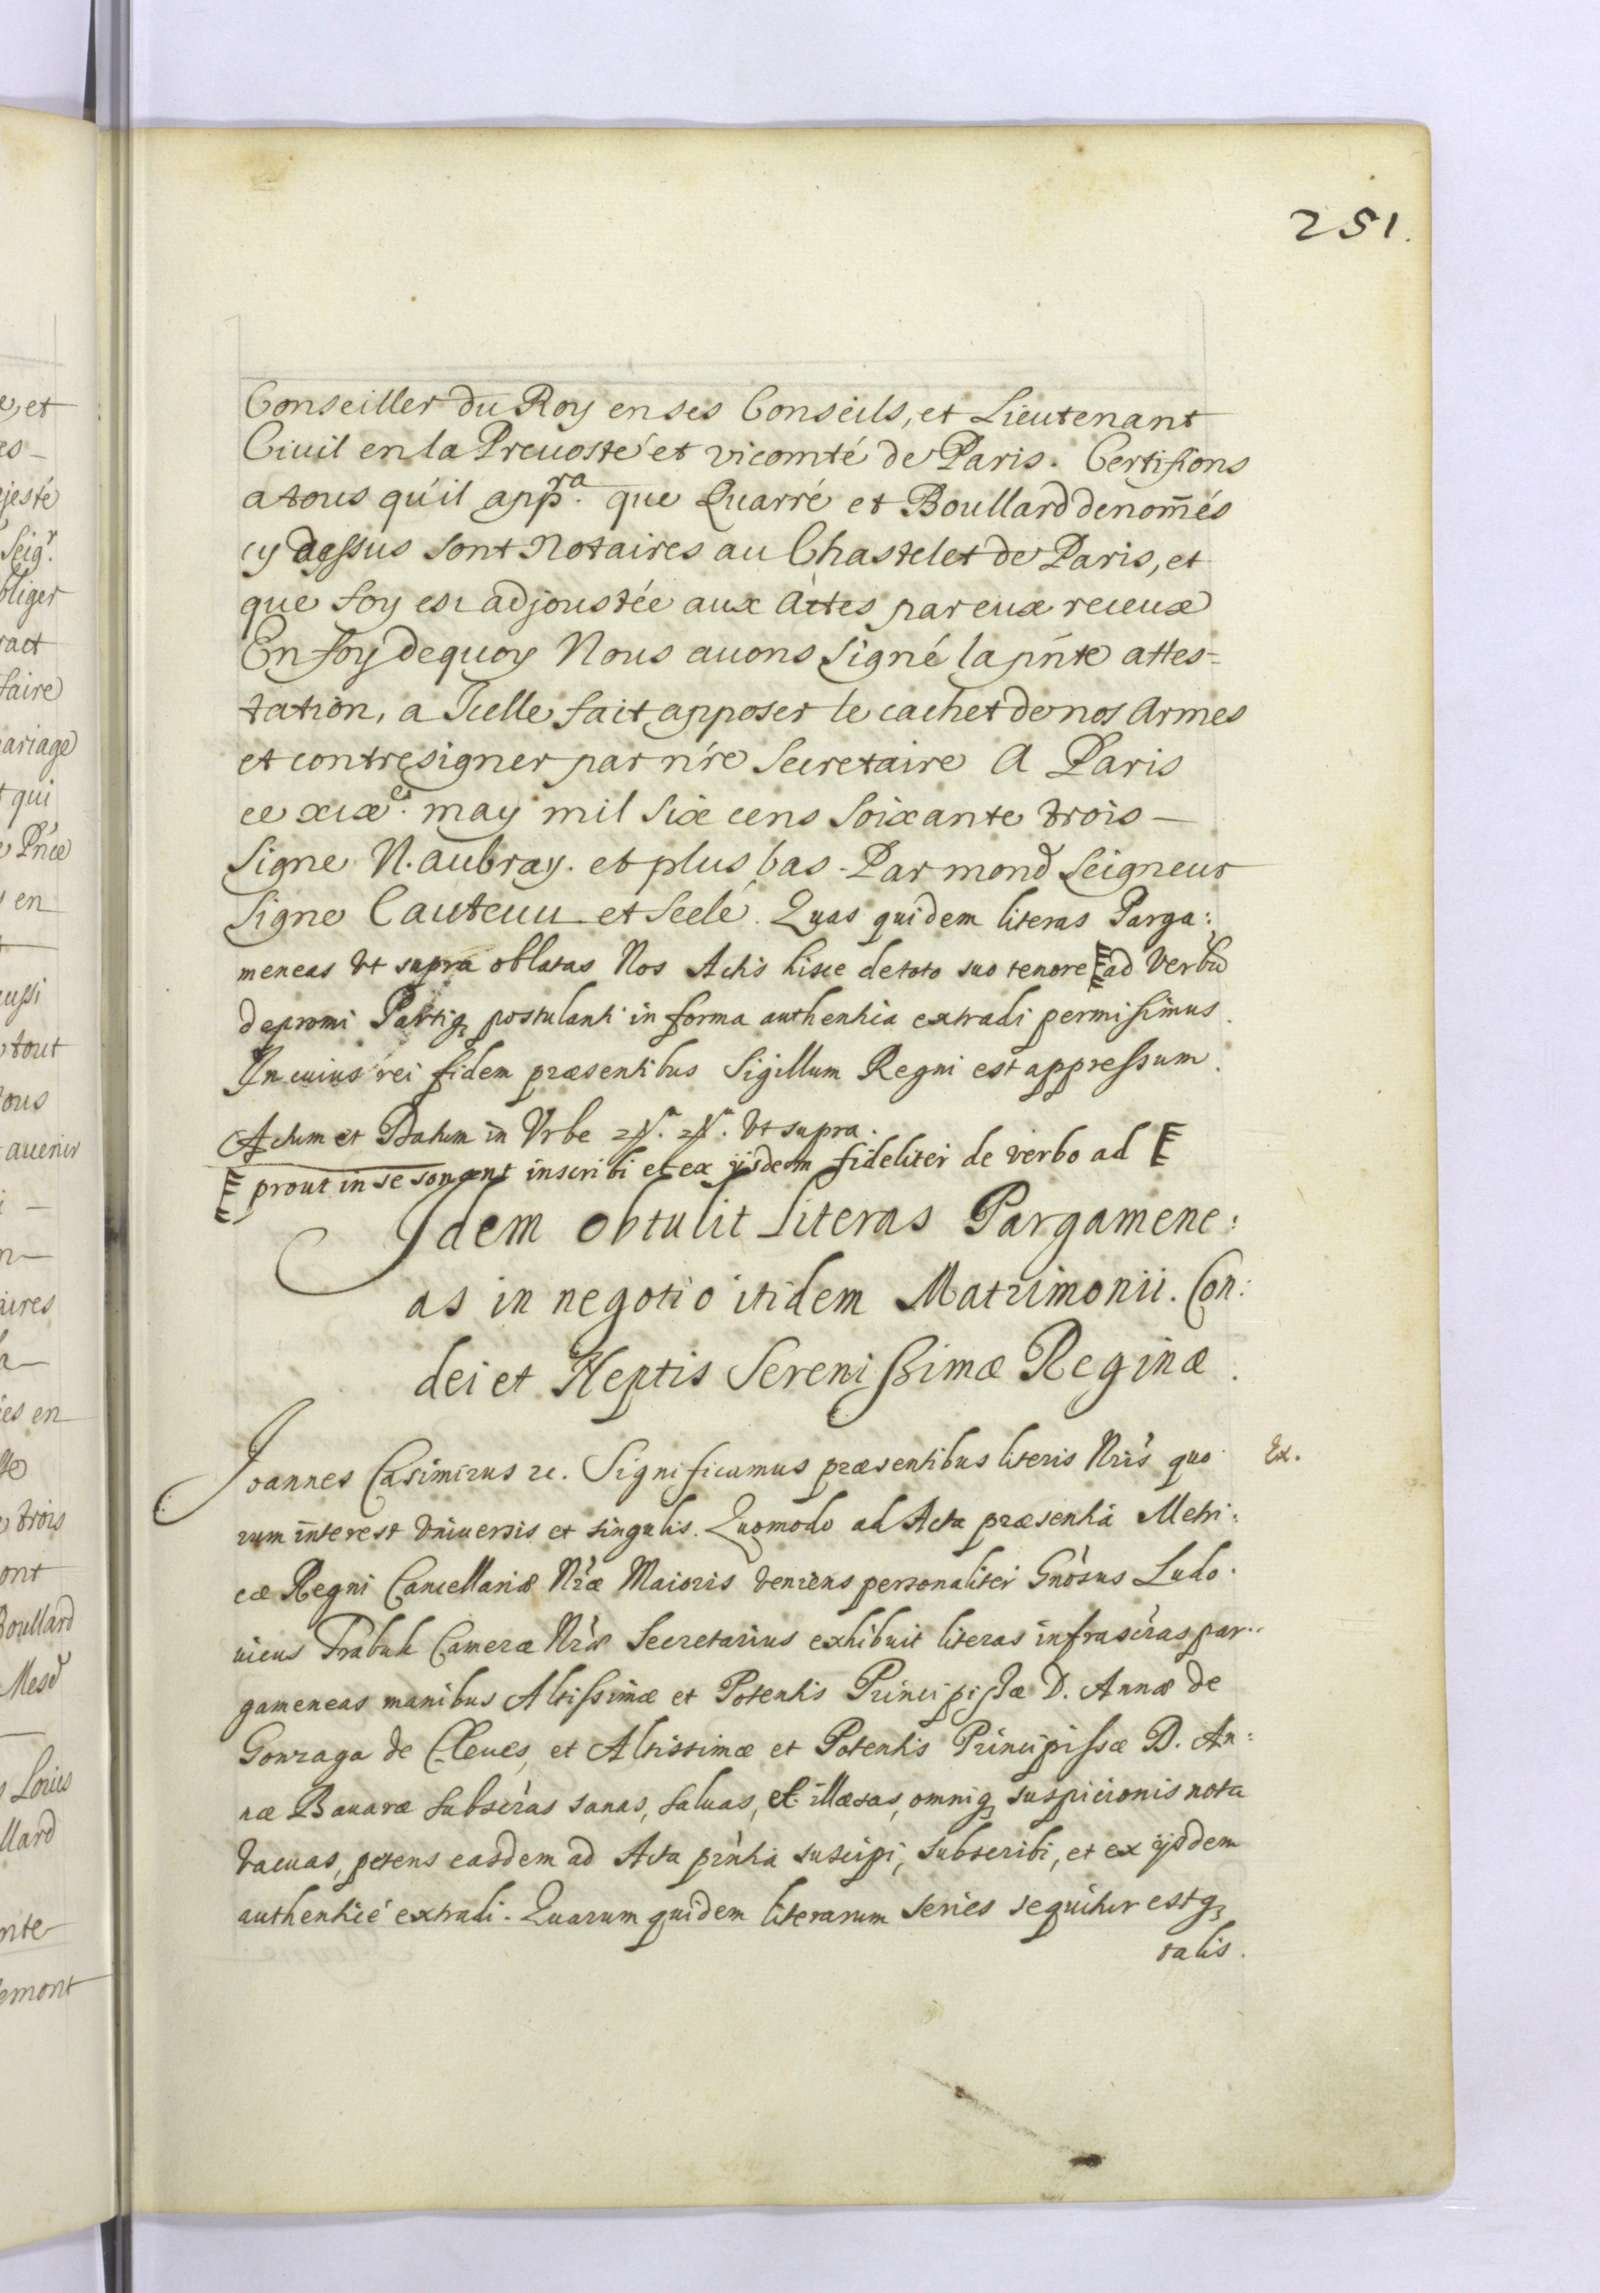 251.
Conseiller du Roy en ses Conseils, et Lieutenant
Ciuil en la Preuosté et vicomté de Paris. Certifions
a tous qu'il app.ra que Quarré et Boullard denom̄és
cy dessus sont Notaires au Chastelet de Paris, et
que foy est adjoustée aux Actes par eux receux
En foy dequoy Nous auons signé la pńte attes=
tation, a Icelle fait apposer le cachet de nos Armes
et contresigner par nr̃e Secretaire A Paris
ce xixe. may mil six cens soixante trois —
Signe N. aubray. et plus bas. Par mond Seigneur
signe et seelé. Quas quidem literas Parga:
meneas vt supra oblatas Nos Actis hisce de toto suo tenore ad Verbũ
depromi Partiq; postulanti in forma authentica extradi permisimus.
In cuius rei fidem præsentibus Sigillum Regni est appressum.
Actum et Datum in Vrbe vt supra.
prout in se sonant inscribi et ex ijsdem fideliter de verbo ad
Idem obtulit Literas Pargamene:
as in negotio itidem Matrimonii. Con:
dei et Neptis Serenissimæ Reginæ.
Ioannes Casimirus etc. Significamus præsentibus literis Nrı̃s quo
Ex.
rum interest vniuersis et singulis. Quomodo ad Acta præsentia Metri:
cæ Regni Cancellariæ Nrǽ Maioris veniens personaliter Gnòsus Ludo:
uicus Cameræ Nrǽ Secretarius exhibuit literas infrascr̃as par:
gameneas manibus Altissimæ et Potentis Principissæ D. Annæ de
Gonzaga de Cleues, et Altissimæ et Potentis Principissæ D. An:
næ Bauaræ subscr̃as sanas, saluas, et illæsas, omniq; suspicionis nota
vacuas, petens easdem ad Acta prńtia suscipi, subscribi, et ex ijsdem
authenticè extradi. Quarum quidem literarum series sequitur estq;
talis.